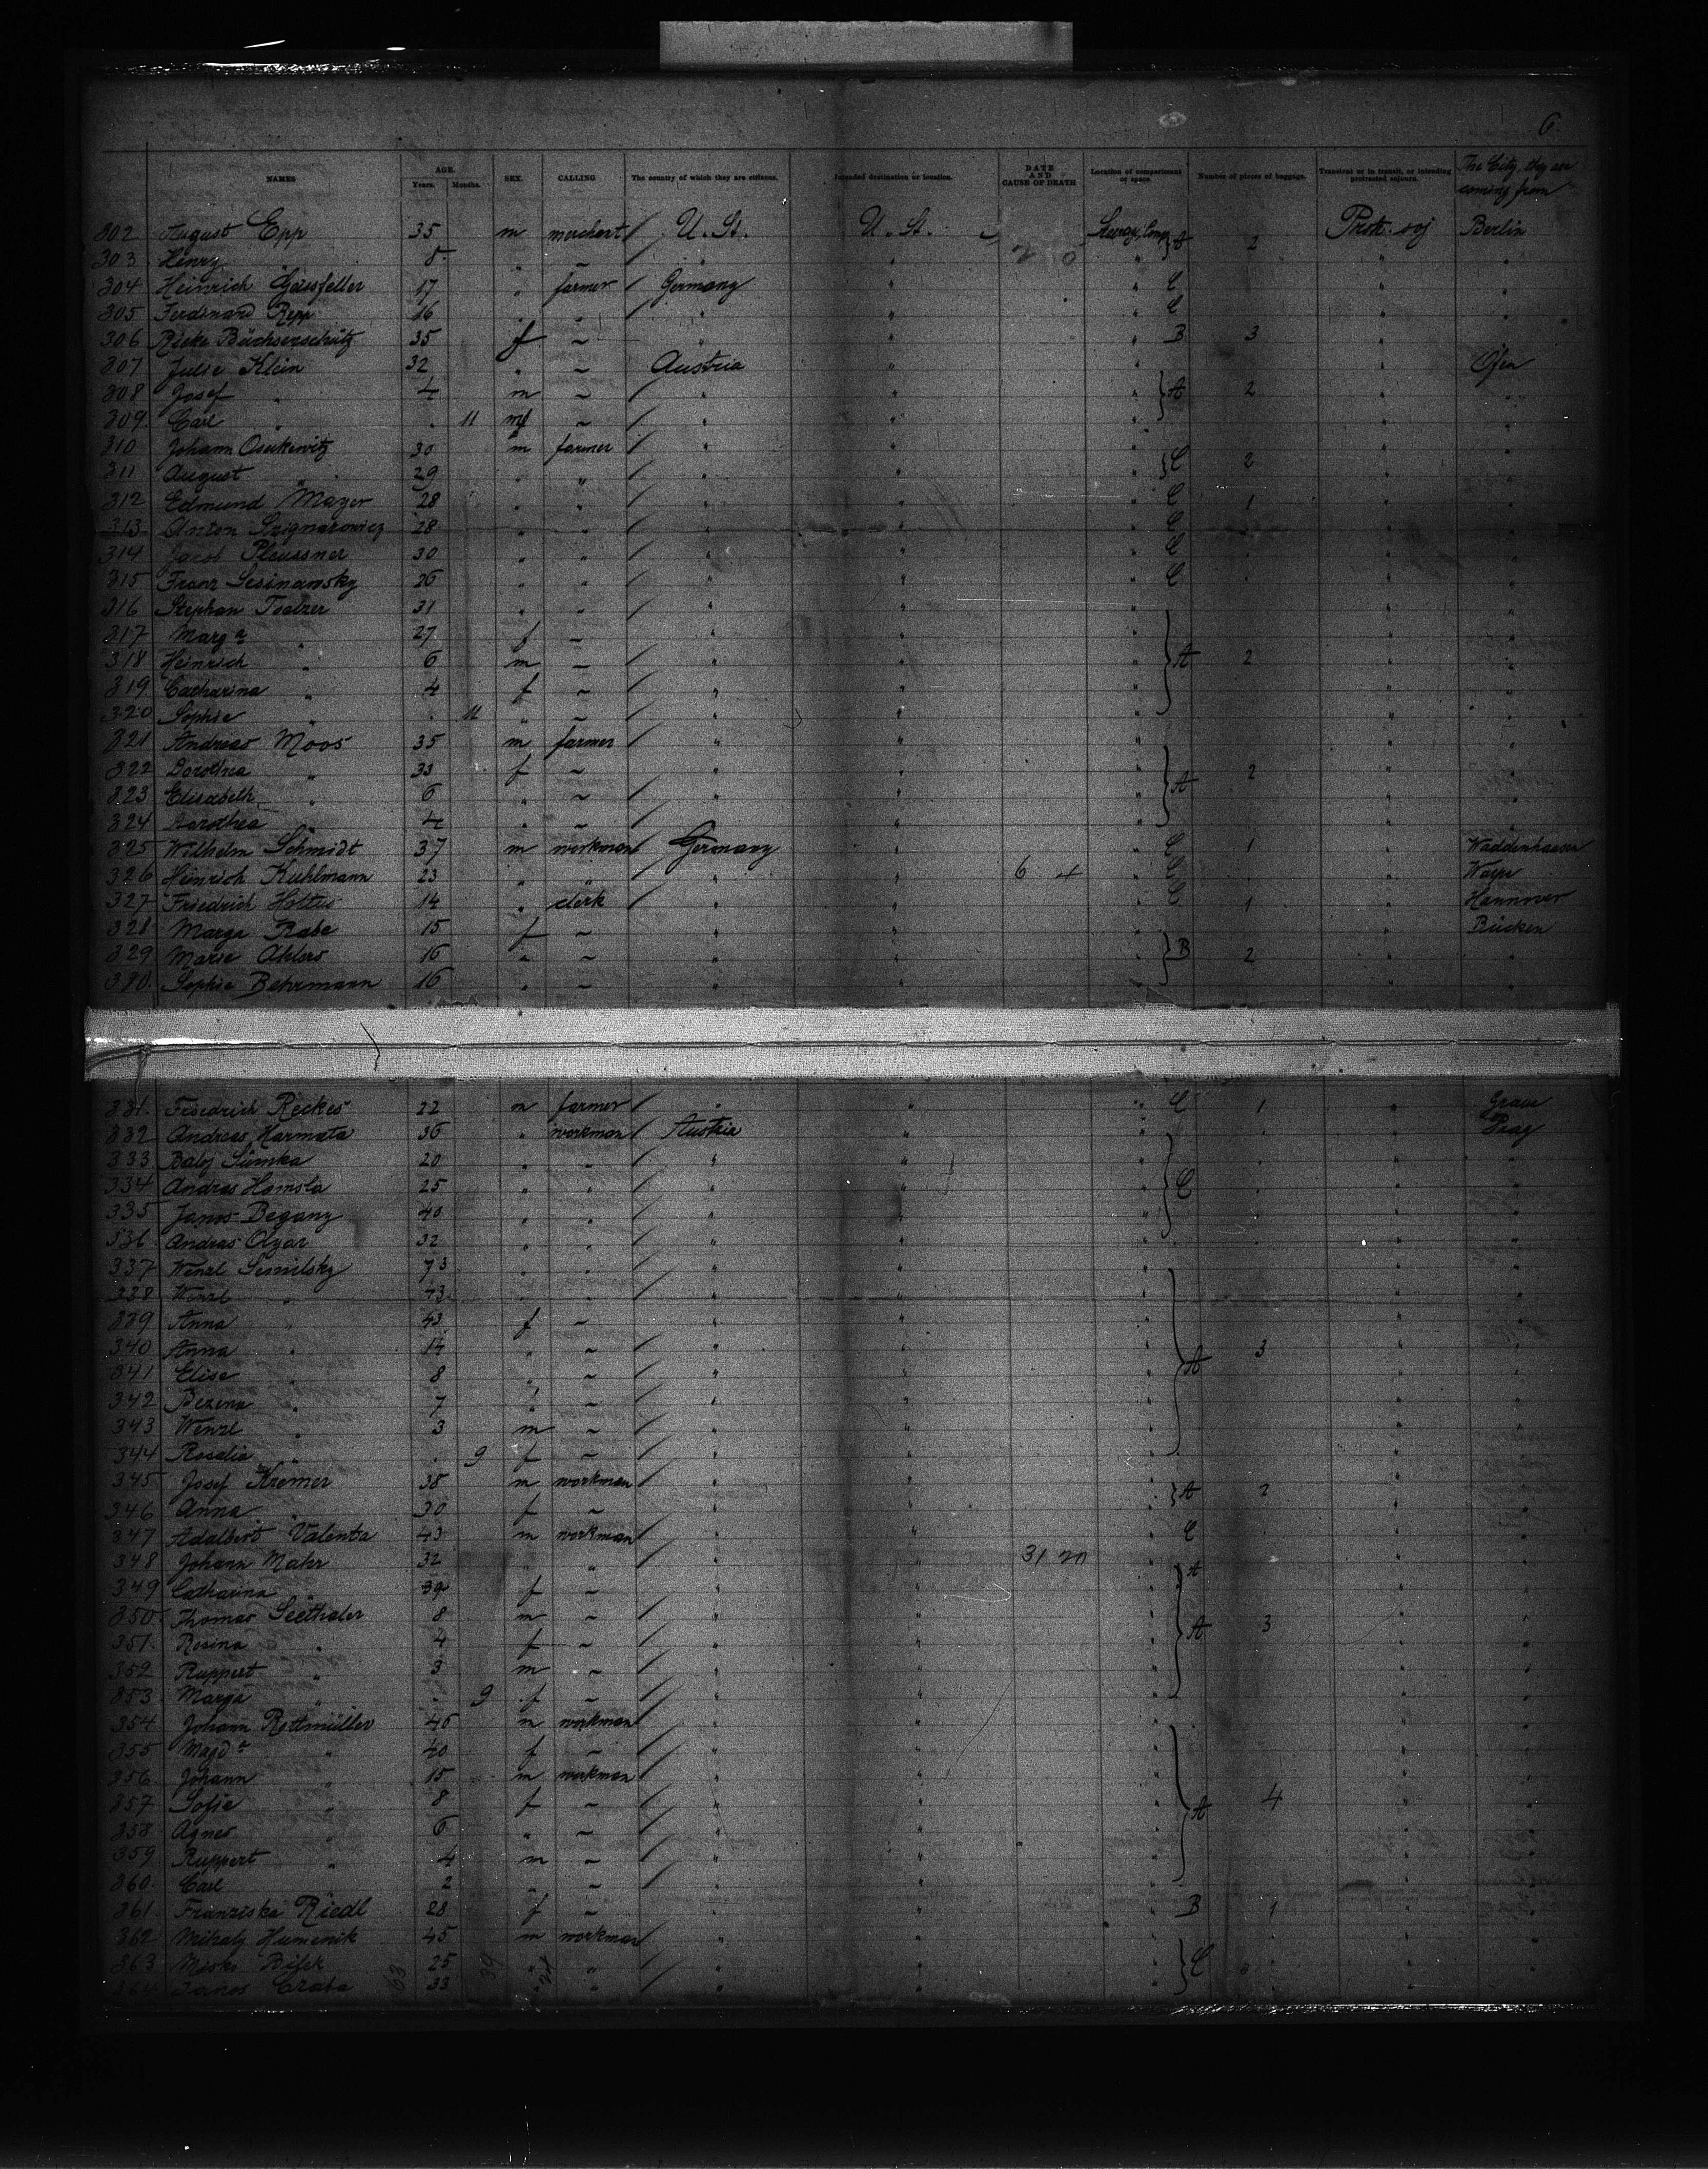 6.
NAMES AGE. Years. Months. SEX. CALLING The country of which they are citizens. Intended destination or location. DATE AND CAUSE OF DEATH Location of compartment or space. Number of pieces of baggage. Transient or in transit, or intending protracted sojourn. The City they are coming from
302 August Epp 35 m merchant U. St. U. St. A 2 Prot. soj Berlin
303 Henry " 8 " ~ " " " " "
304 Heinrich 17 " farmer Germany " " C " "
305 Ferdinand Repp 16 " ~ " " " C " "
306 Rieke Büchserschütz 35 f ~ " " " B 3 " "
307 Julie Klein 32 " ~ Austria " " " Ofen
308 Josef " 4 m ~ " " " A 2 " "
309 Carl " . 11 m ~ " " " " "
310 Johann 30 m farmer " " " " "
311 August " 29 " " " " " C 2 " "
312 Edmund Mayer 28 " " " " " C 1 " "
313 Anton 28 " " " " " C " "
314 Jacob Pleussner 30 " " " " " C " "
315 Franz 26 " " " " " C " "
316 Stephan 31 " " " " " " "
317 Marg a " 27 f ~ " " " " "
318 Heinrich " 6 m ~ " " " A 2 " "
319 Catharina " 4 f ~ " " " " "
320 Sophie " . 11 " ~ " " " " "
321 Andreas Moos 35 m farmer " " " " "
322 Dorothea " 33 f ~ " " " 2 " "
323 Elisabeth " 6 " ~ " " " A " "
324 Dorothea " 4 " ~ " " " " "
325 Wilhelm Schmidt 37 m workman Germany " " C 1 " Waddenhausen
326 Heinrich Kuhlmann 23 " " " " 6 4 " C . "
327 Friedrich Hottus 14 " clerk " " " C 1 " Hannover
328 Marga Rabe 15 f ~ " " " " Bücken
329 Marie Ahlers 16 " ~ " " " B 2 " "
330. Sophie Behrmann 16 " ~ " " " " "
331. Friedrich Reckes 22 m farmer " " " C 1 "
332 Andreas Harmata 36 " workman Austria " " . " Prag
333 Balij Sumka 20 " " " " " " "
334 Andras Homsla 25 " " " " " C . " "
335 Janos Begany 40 " " " " " " "
336 Andras 32 " " " " " " "
337 Wenzl Semilsky 73 " " " " " " "
338 Wenzl " 43 " " " " " " "
339 Anna " 43 f ~ " " " " "
340 Anna " 14 " ~ " " " 3 " "
341 Elise " 8 " ~ " " " A " "
342 Bezena " 7 " ~ " " " " "
343 Wenzl " 3 m ~ " " " " "
344 Rosalia " . 9 f ~ " " " " "
345 Josef Kremer 38 m workman " " " A 2 " "
346 Anna " 30 f ~ " " " " "
347 Adalbert Valenta 43 m workman " " " C . " "
348 Johann Mahr 32 " " " " 31 20 " " "
349 Catharina " f ~ " " " A " "
350 Thomas Seethaler 8 m ~ " " " " "
351. Rosina " 4 f ~ " " " A 3 " "
352 Ruppert " 3 m ~ " " " " "
353 Marga " . 9 f ~ " " " " "
354 Johann Rottmüller 46 m workman " " " " "
355 Magd a " 40 f ~ " " " " "
356 Johann " 15 m workman " " " " "
357 Sofie " 8 f ~ " " " A 4 " "
358 Agnes " 6 " ~ " " " " "
359 Ruppert " 4 m ~ " " " " "
360. Carl " 2 " ~ " " " " "
361 Franziska Riedl 28 f ~ " " " B 1 " "
362 Mihaly Humenik 45 m workman " " " . " "
363 Misko 25 " " " " " C " " "
364 Janos 33 " " " " " " "